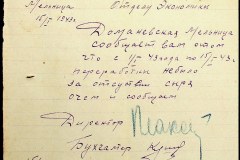 Мельница Отделу Экономики
15/I 1943 г.
Доманевская Мельница
сообщает вам о том
что с 1/I-43 года по 15/I-43 г.
переработки небыло
за отсутстви
о чем и сообщаем
Директор
Бухгалтер